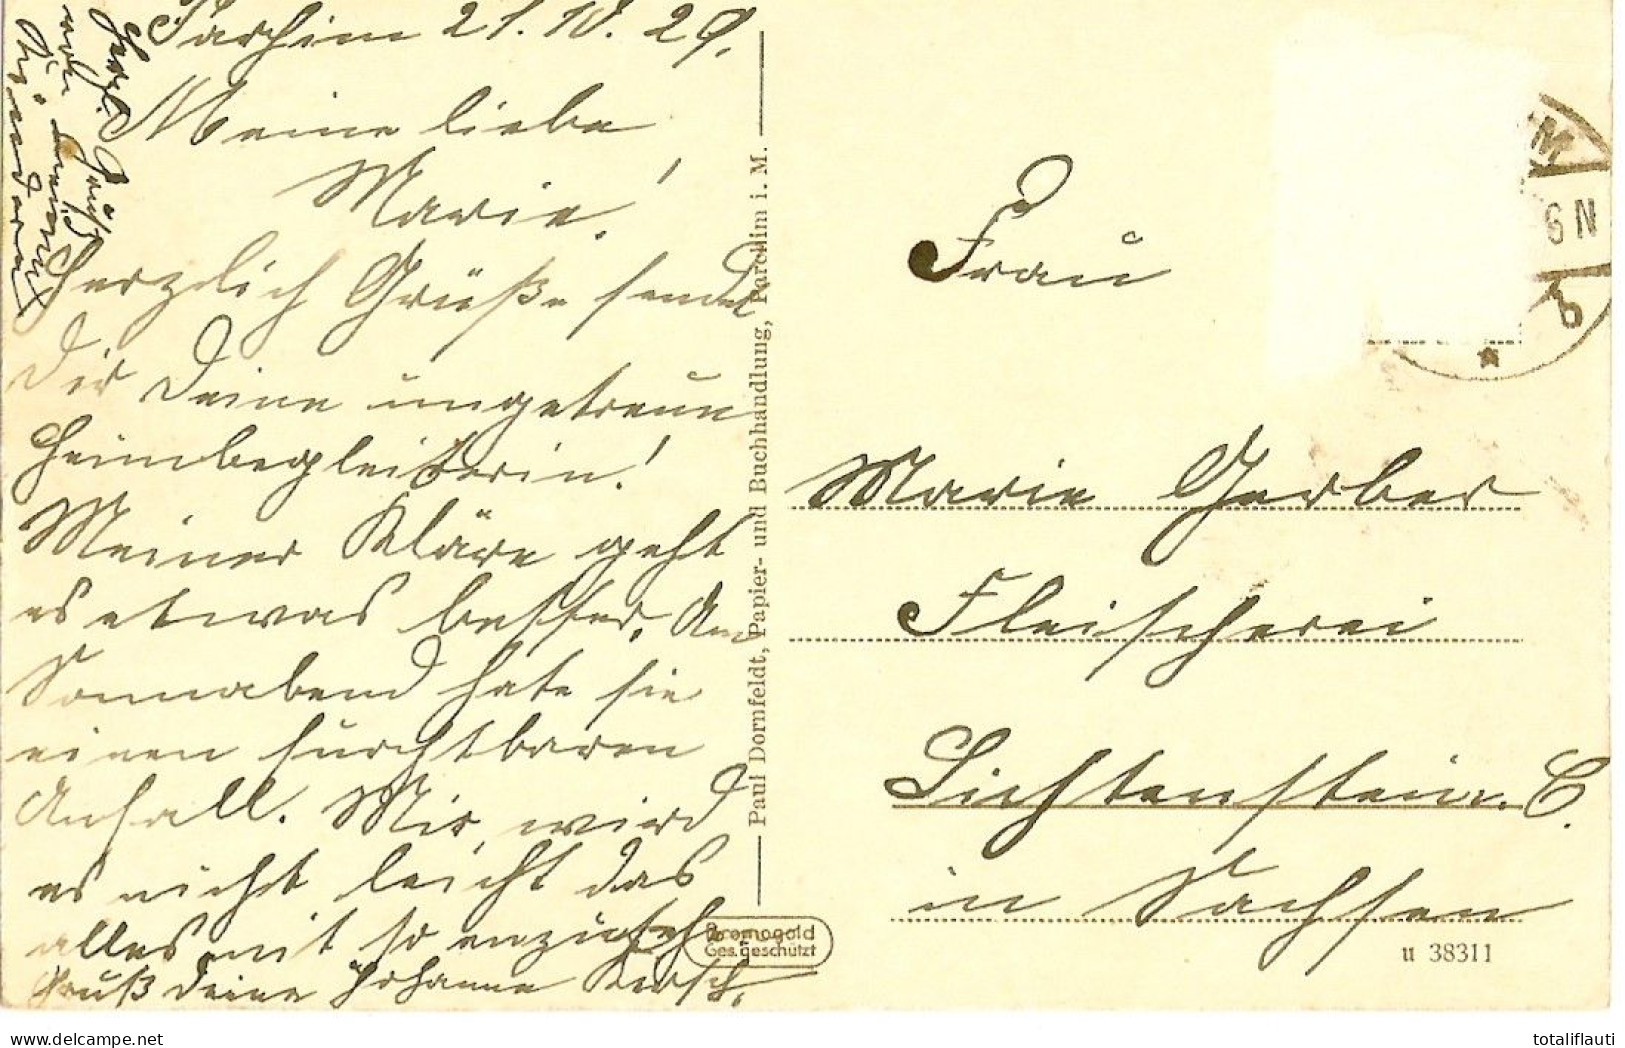 Parchim 21.10.29.
Meine liebe
Marie!
Herzlich Grüße sendet
Dir Deine ungetreue
Heimbegleiterin!
Meiner Kläre geht
es etwas besser. Am
Sonnabend hate sie
einen furchtbaren
Anfall. Mir wird
es nicht leicht das
alles mit so anzusehn
Gruß Deine Johanne
Herzl. Grüße
von deinen
Paul Dornfeldt, Papier- und Buchhandlung, Parchim i. M.
Frau
Marie Gerber
Fleischerei
Lichtenstein. C.
in Sachsen
Bromogold
Ges. geschützt
u 38311
M
6 N
totaliflauti